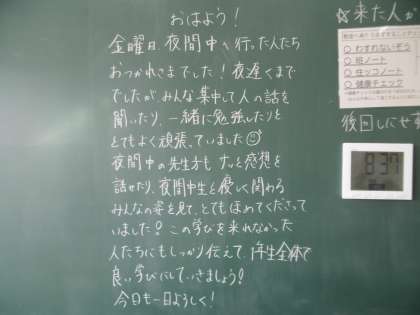 おはよう！
金曜日、夜間中へ行った人たち
おつかれさまでした！夜遅くまで
でしたが、みんな集中して人の話を
聞いたり、一緒に勉強したりと
とてもよく頑張っていました☺
夜間中の先生方も、サッと感想を
話せたり、夜間中生と優しく関わる
みんなの姿を見て、とてもほめてくださって
いました？この学びを来れなかった
人たちにもしっかり伝えて、1年生全体で
良い学びにしていきましょう！
今日も一日よろしく！
☆来た人が
○わすれないぞう
○班ノート
○健康チェック
後回しにせず
8:37